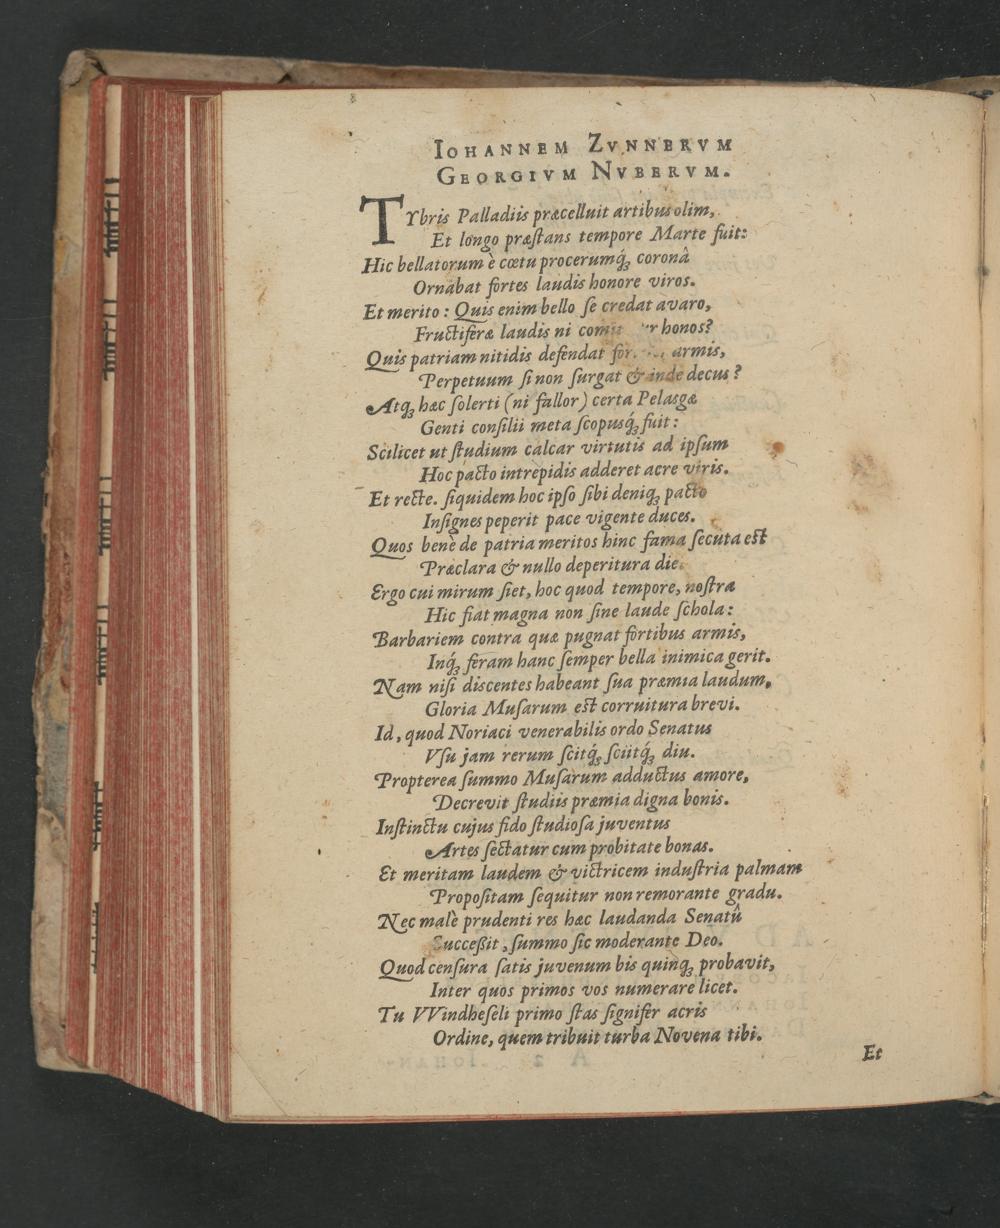 IOHANNEM ZVNNERVM
GEORGIVM NVBERVM.
TYbris Palladiis præcelluit artibus olim,
Et longo præſtans tempore Marte fuit:
Hic bellatorum è cœtu procerumq́ꝫ coronâ
Ornabat fortes laudis honore viros.
Et merito: Quis enim bello ſe credat avaro,
Fructiferæ laudis ni honos?
Quis patriam nitidis defendat armis,
Perpetuum ſi non ſurgat & inde decus?
Atqꝫ hæc ſolerti (ni fallor) certa Pelasgæ
Genti conſilii meta ſcopusq́ꝫ fuit:
Scilicet ut ſtudium calcar virtutis ad ipſum
Hoc pacto intrepidis adderet acre viris.
Et recte. ſiquidem hoc ipſo ſibi deniqꝫ pacto
Inſignes peperit pace vigente duces.
Quos benè de patria meritos hinc fama ſecuta est
Præclara & nullo deperitura die.
Ergo cui mirum ſiet, hoc quod tempore, noſtra
Hic fiat magna non ſine laude ſchola:
Barbariem contra quæ pugnat fortibus armis,
Inq́ꝫ feram hanc ſemper bella inimica gerit.
Nam niſi discentes habeant ſua præmia laudum,
Gloria Muſarum est corruitura brevi.
Id, quod Noriaci venerabilis ordo Senatus
Vſu jam rerum ſcitq́ꝫ ſciitq́ꝫ diu.
Propterea ſummo Muſarum adductus amore,
Decrevit ſtudiis præmia digna bonis.
Inſtinctu cujus fido ſtudioſa juventus
Artes ſectatur cum probitate bonas.
Et meritam laudem & victricem induſtria palmam
Propoſitam ſequitur non remorante gradu.
Nec malè prudenti res hæc laudanda Senatû
Succeßit, ſummo ſic moderante Deo.
Quod cenſura ſatis juvenum bis quinqꝫ probavit,
Inter quos primos vos numerare licet.
Tu VVindheſeli primo ſtas ſignifer acris
Ordine, quem tribuit turba Novena tibi.
Et